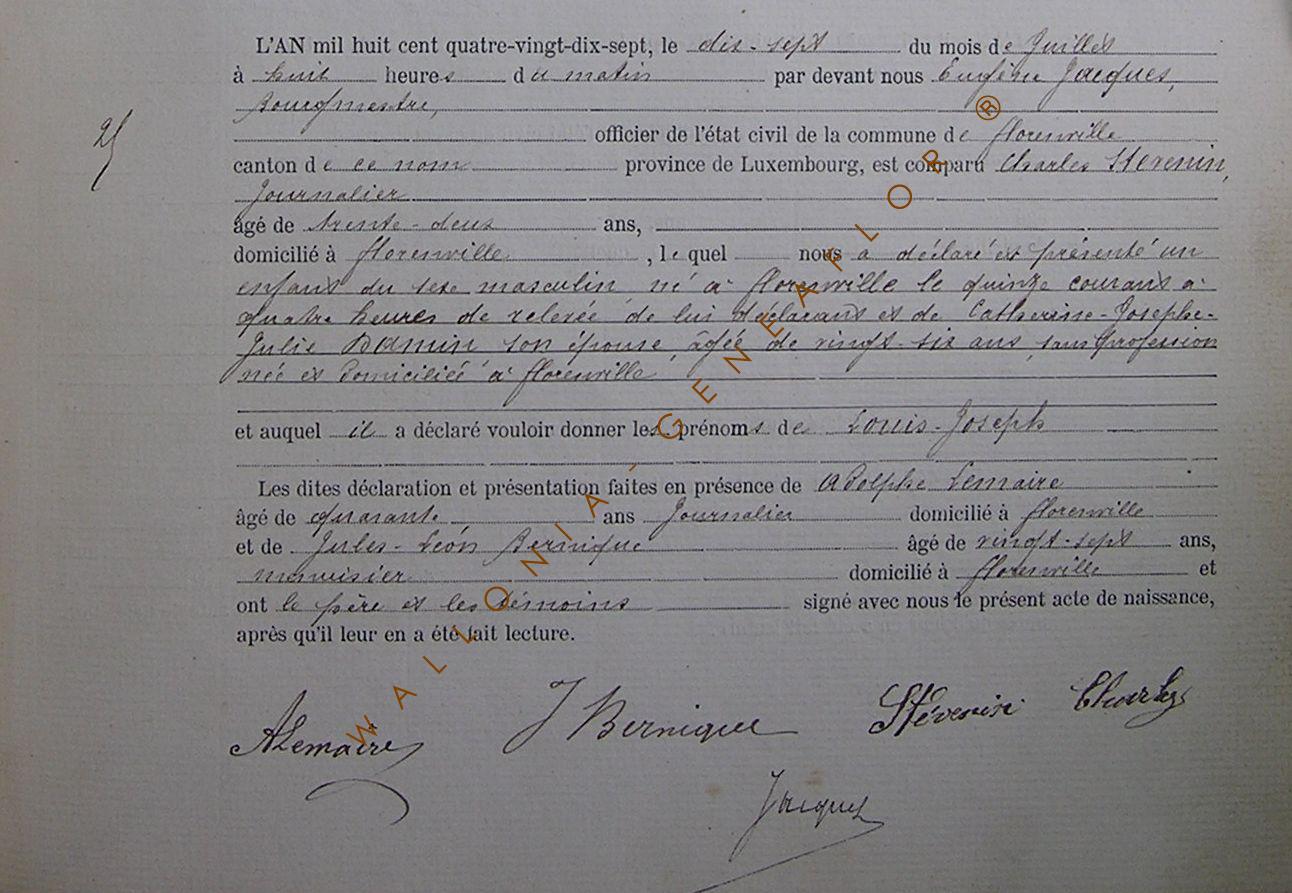 L'AN mil huit cent quatre-vingt-dix-sept, le dix-sept du mois de Juillet
à huit heures du matin par devant nous Eugène Jacques,
Bourgmestre,
25
officier de l'état civil de la commune de florenville
canton de ce nom province de Luxembourg, est comparu Charles Stévenin,
Journalier
âgé de trente-deux ans,
domicilié à florenville, lequel nous a déclaré et présenté un
enfant du sexe masculin né à florenville le quinze courant à
quatre heures de relevée de lui déclarant et de Catherine-Josephe-
Julie Damin son épouse, âgée de vingt-six ans, sans profession
née et domiciliée à florenville
et auquel il a déclaré vouloir donner les prénoms de Louis-Joseph
Les dites déclaration et présentation faites en présence de Adolphe Lemaire
âgé de quarante ans Journalier domicilié à florenville
et de Jules-Léon Bernique âgé de vingt-sept ans,
menuisier domicilié à florenville et
ont le père et les témoins signé avec nous le présent acte de naissance,
après qu'il leur en a été fait lecture.
ALemaire J Bernique Stévenin Charles
Jacques
WALLONIA - GENEAFLOR ®